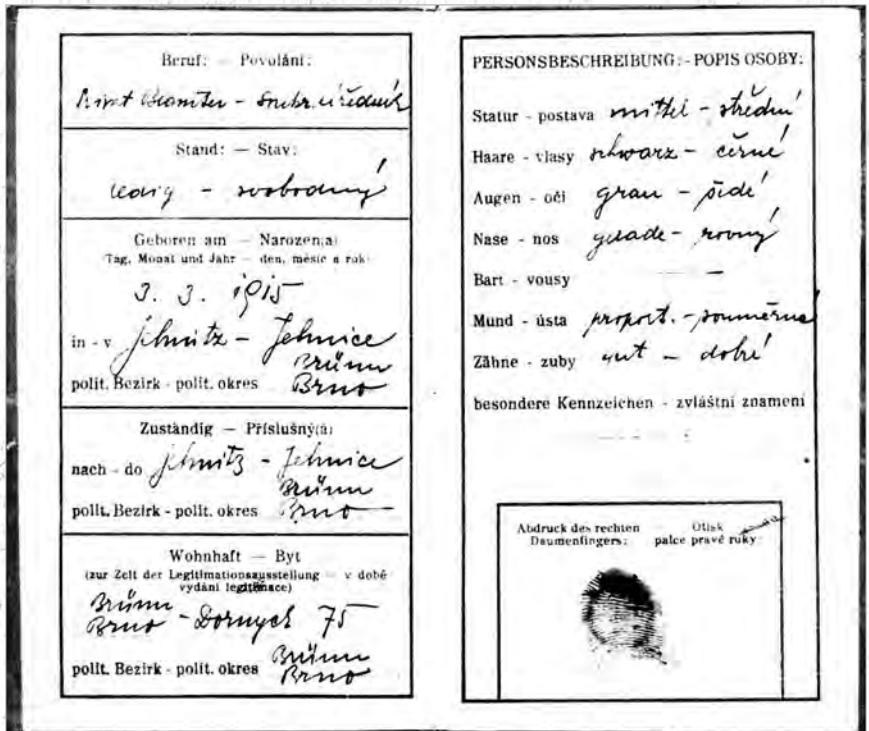 Beruf: — Povolání:
Privat Beamter - soukr. úředník
Stand: — Stav:
ledig - svobodný
Geboren am — Narozen(a)
Tag, Monat und Jahr — den, měsíc a rok
3. 3. 1915
in - v Jehnitz - Jehnice
Brünn
polit. Bezirk - polit. okres Brno
Zuständig — Příslušný(á)
nach - do Jehnitz - Jehnice
Brünn
polit. Bezirk - polit. okres Brno
Wohnhaft — Byt
(zur Zeit der Legitimationsausstellung — v době
vydání legitimace)
Brünn
Brno - Dornych 75
Brünn
polit. Bezirk - polit. okres Brno
PERSONSBESCHREIBUNG: - POPIS OSOBY:
Statur - postava mittel - střední
Haare - vlasy schwarz - černé
Augen - oči grau - šedé
Nase - nos gerade - rovný
Bart - vousy —
Mund - ústa proport. - souměrná
Zähne - zuby gut - dobré
besondere Kennzeichen - zvláštní znamení
Abdruck des rechten Daumenfingers:
Otisk palce pravé ruky